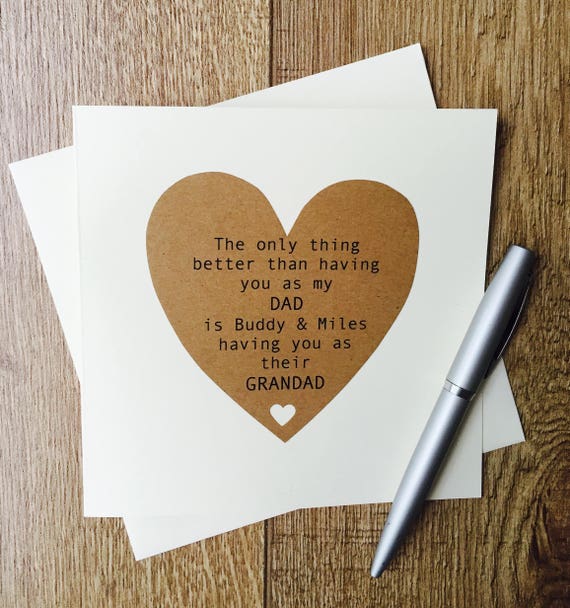 The only thing
better than having
you as my
DAD
is Buddy & Miles
having you as
their
GRANDAD